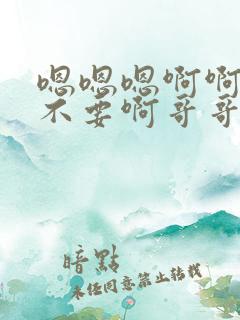 嗯嗯嗯啊啊
不要啊哥哥
暗點
未任同意禁止转载